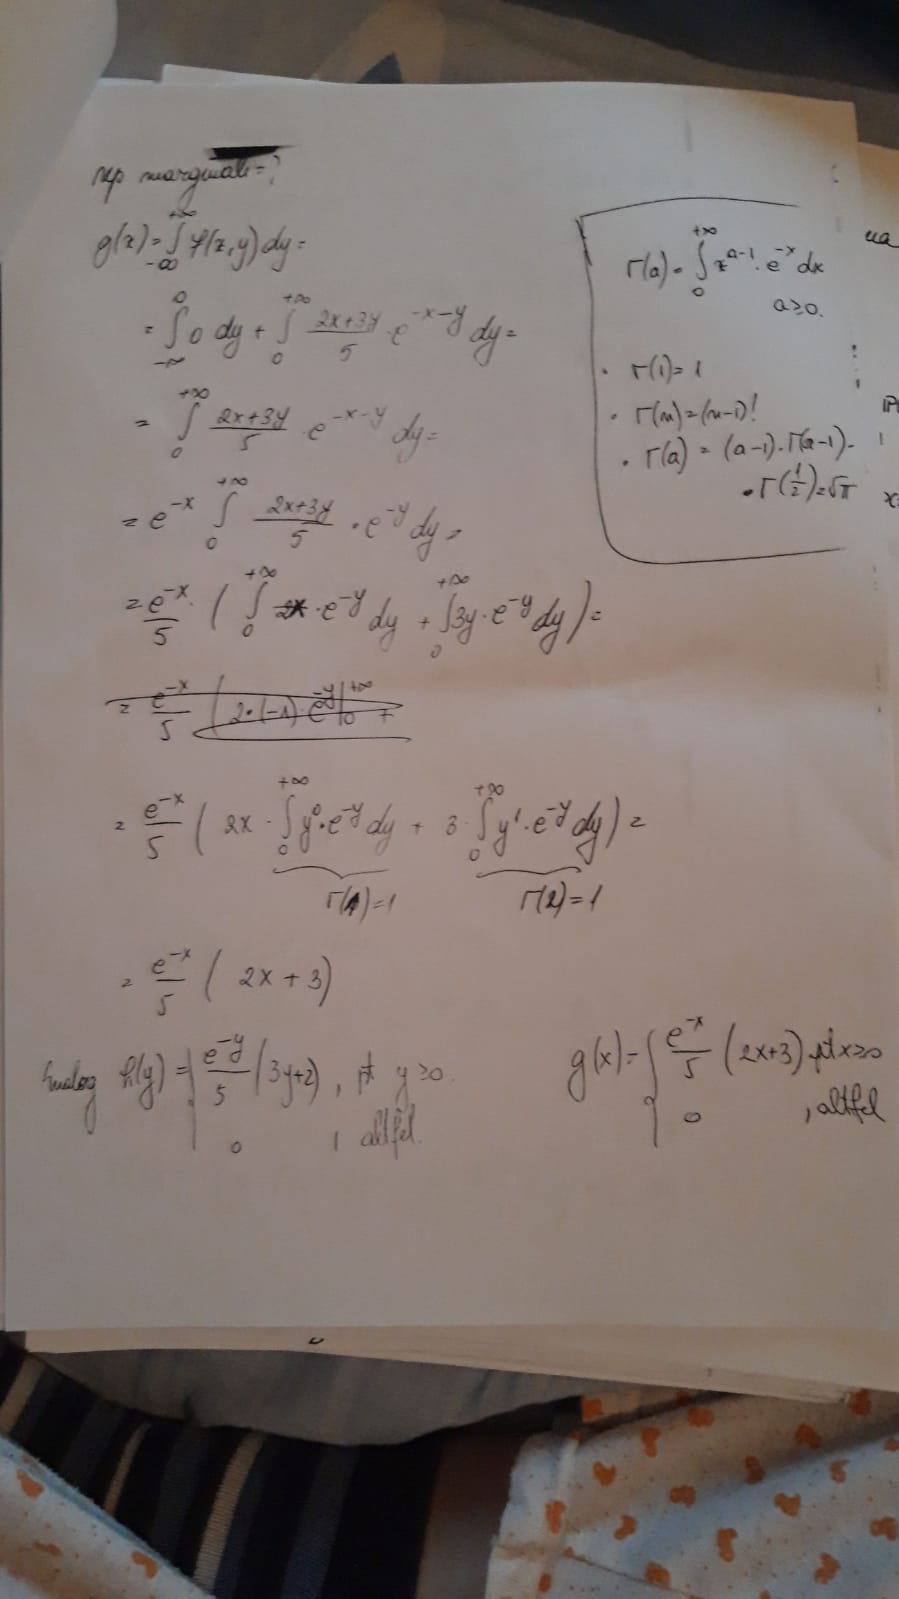 rep marginale=?
g(x)=∫_{-∞}^{+∞} f(x,y) dy=
= ∫_{-∞}^{0} 0 dy + ∫_{0}^{+∞} (2x+3y)/5 · e^{-x-y} dy=
= ∫_{0}^{+∞} (2x+3y)/5 · e^{-x-y} dy=
= e^{-x} ∫_{0}^{+∞} (2x+3y)/5 · e^{-y} dy =
= e^{-x}/5 · ( ∫_{0}^{+∞} 2x · e^{-y} dy + ∫_{0}^{+∞} 3y · e^{-y} dy )=
= e^{-x}/5 ( 2·(-1)· e^{-y} |_{0}^{+∞} +
= e^{-x}/5 ( 2x · ∫_{0}^{+∞} y^0 · e^{-y} dy + 3 · ∫_{0}^{+∞} y^1 · e^{-y} dy ) =
Γ(1)=1 Γ(2)=1
= e^{-x}/5 ( 2x + 3)
Analog h(y) = { e^{-y}/5 (3y+2), pt y≥0.
0 , altfel.
g(x)= { e^{-x}/5 (2x+3) pt x≥0
0 , altfel
Γ(a) = ∫_{0}^{+∞} x^{a-1} · e^{-x} dx
a≥0.
· Γ(1)=1
· Γ(n)=(n-1)!
· Γ(a) = (a-1)·Γ(a-1).
· Γ(1/2)=√π